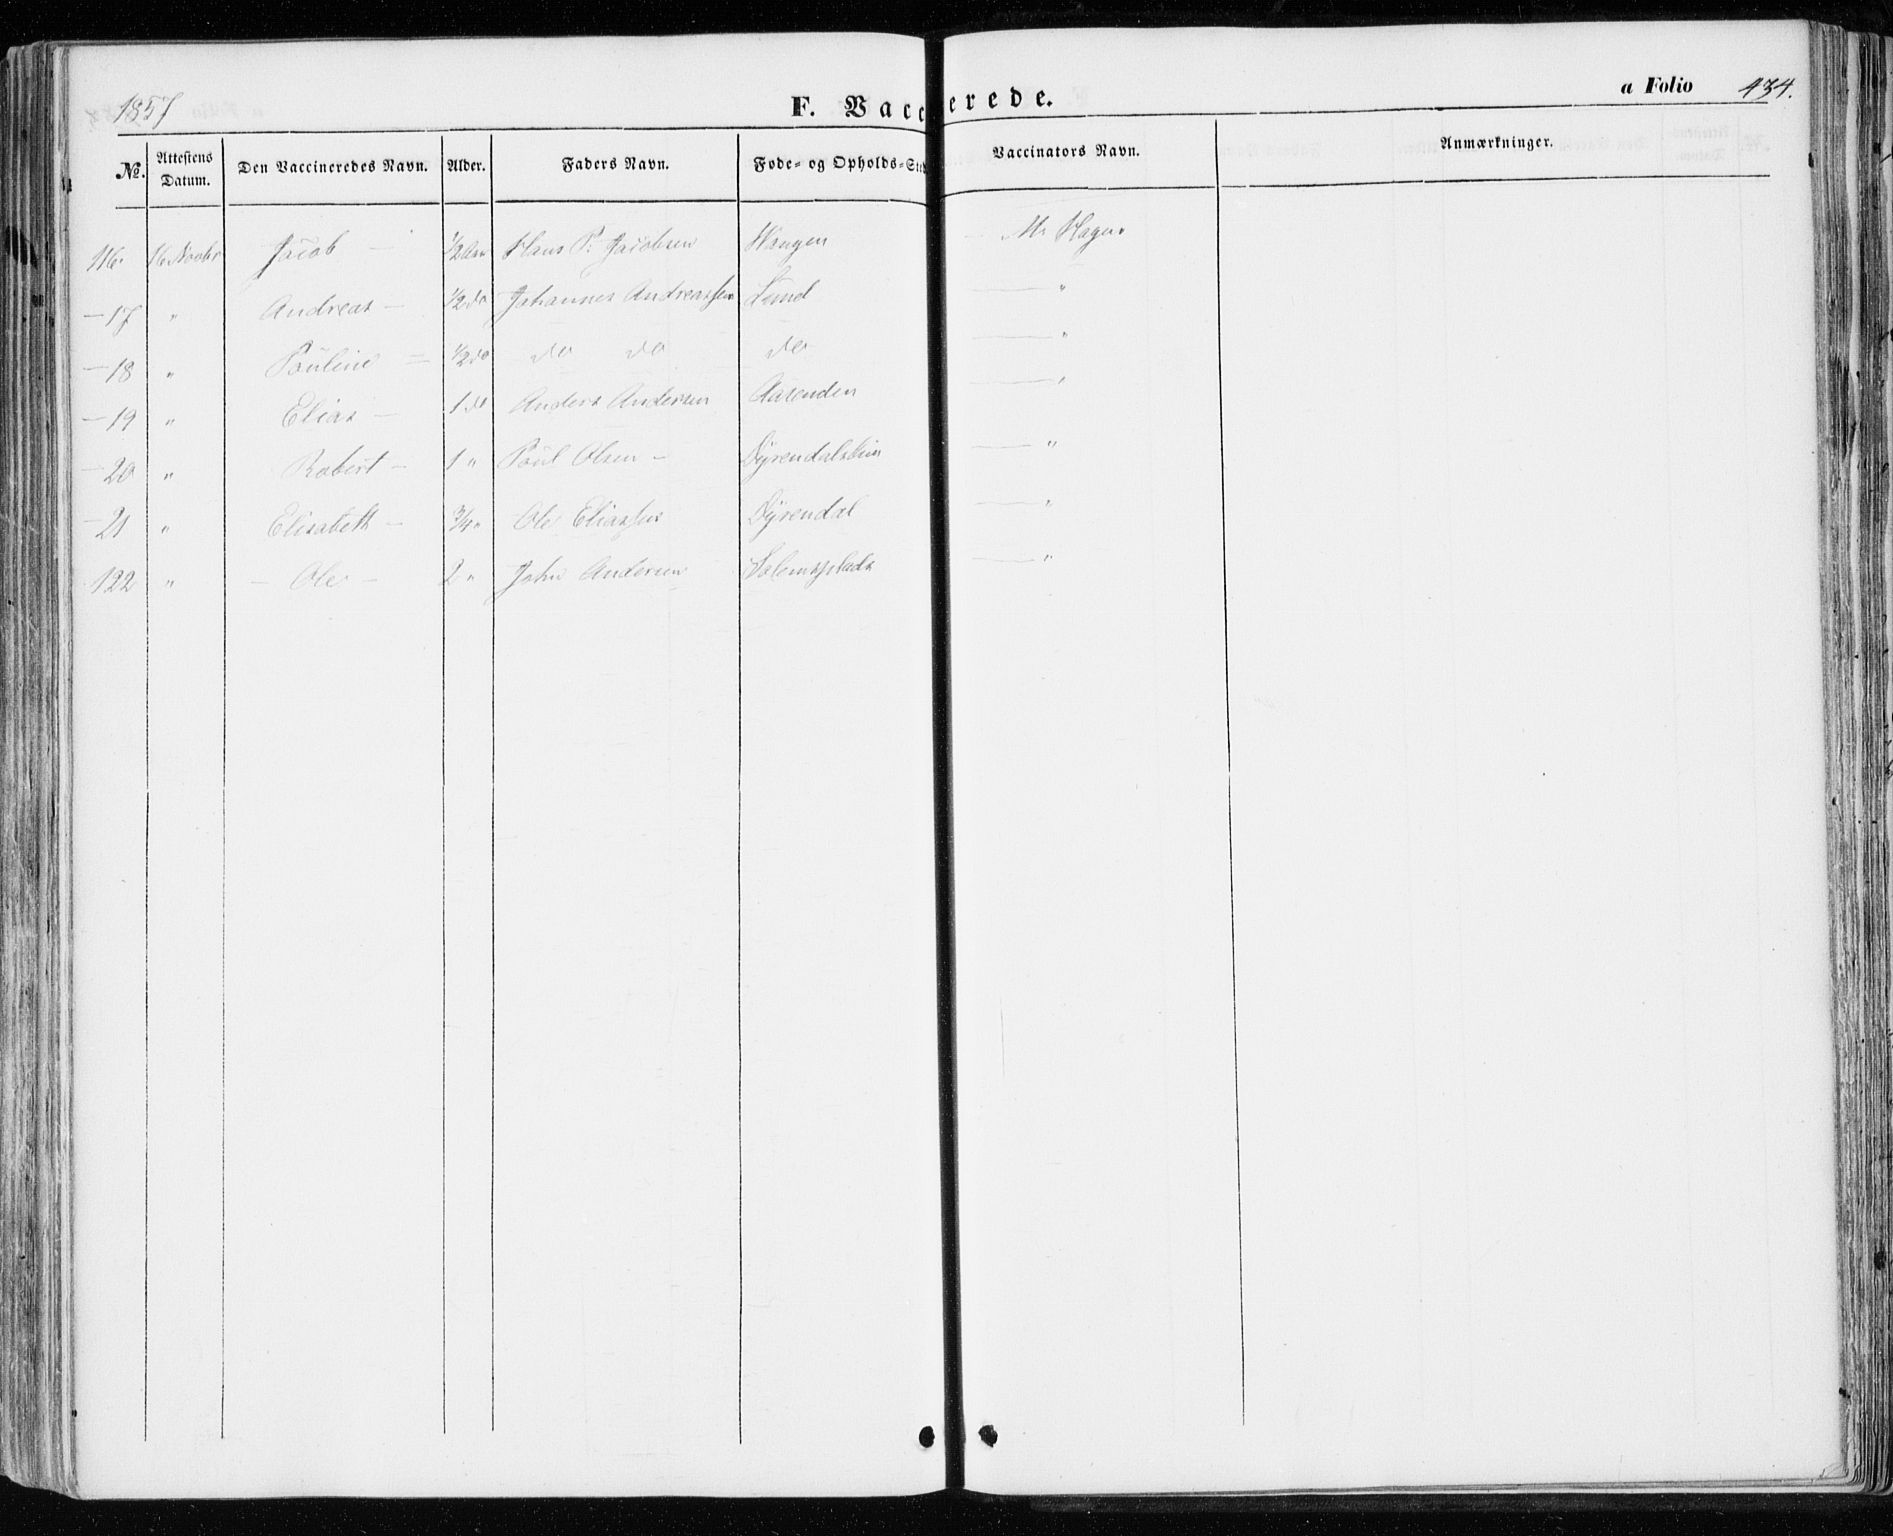 1857
F. Vaccinerede.
a Folio 434.
No. Attestens Datum. Den Vaccineredes Navn. Alder. Faders Navn. Føde- og Opholds-Sted Vaccinators Navn. Anmærkninger.
116. 16 Novbr Jacob - 1/2 Aar Hans P. Jacobsen Wangen Mr Hagen
- 17 " Andreas - 1/2 do Johannes Andreassen Lund — "
- 18 " Pauline = 1/2 do do do do — "
- 19 " Elias - 1 do Anders Andersen Aasenden — "
- 20 " Robert - 1 " Poul Olsen - — "
- 21 " Elisabeth - 3/4 " Ole Eliassen Dÿrendal — "
122 " - Ole - 2 " John Andersen Salemsplads — "